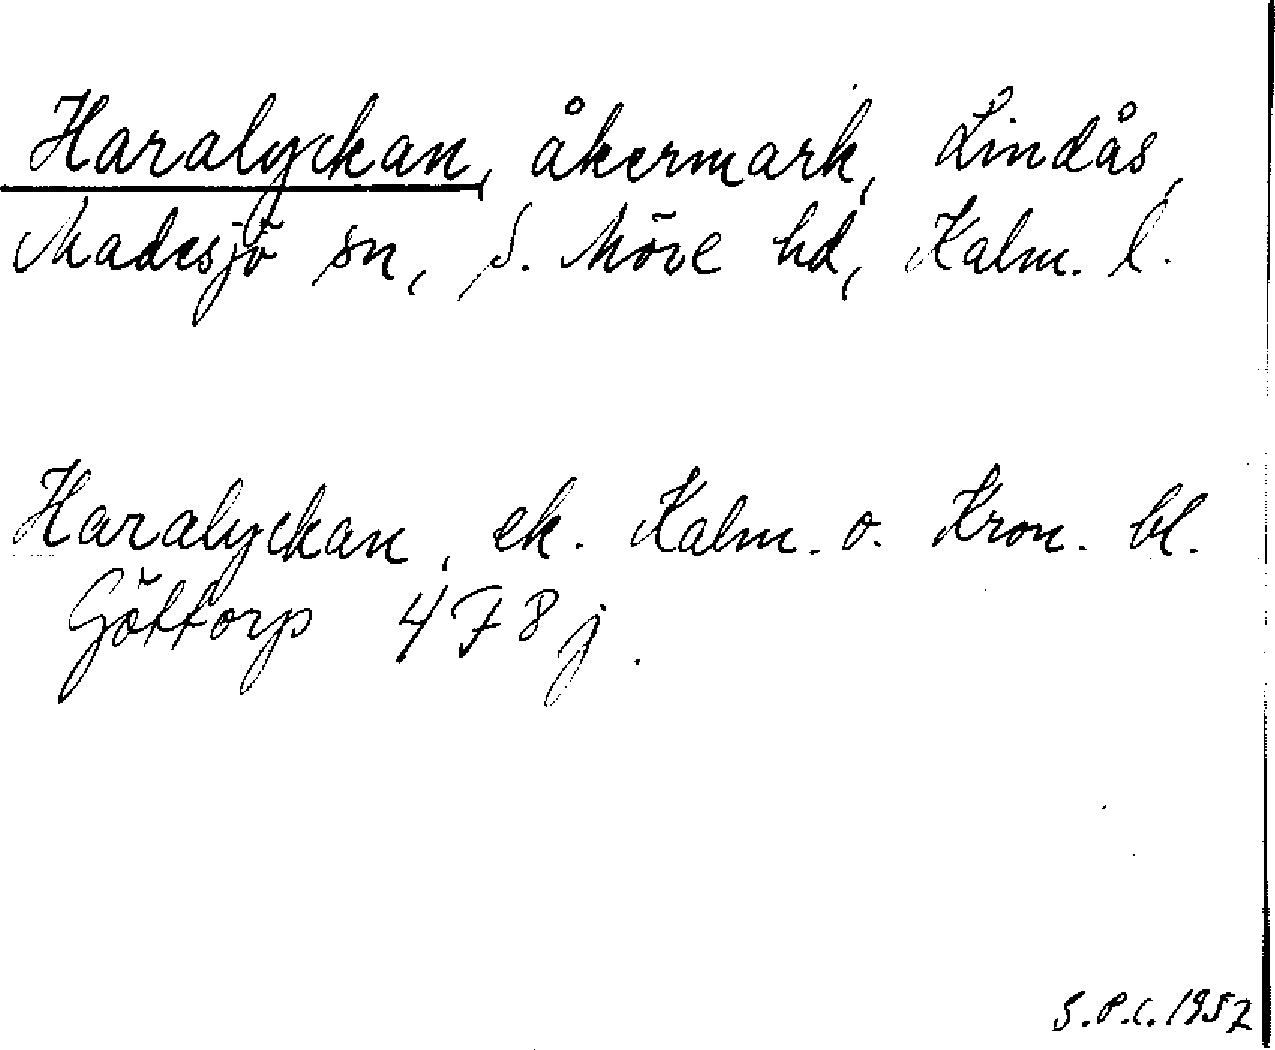 Haralyckan, åkermark, Lindås,
Madesjö sn, S. Möre hd, Kalm. l.
Haralyckan, ek. Kalm. o. Kron. bl.
Göttorp 4 F 8 j.
S.P.C. 1952